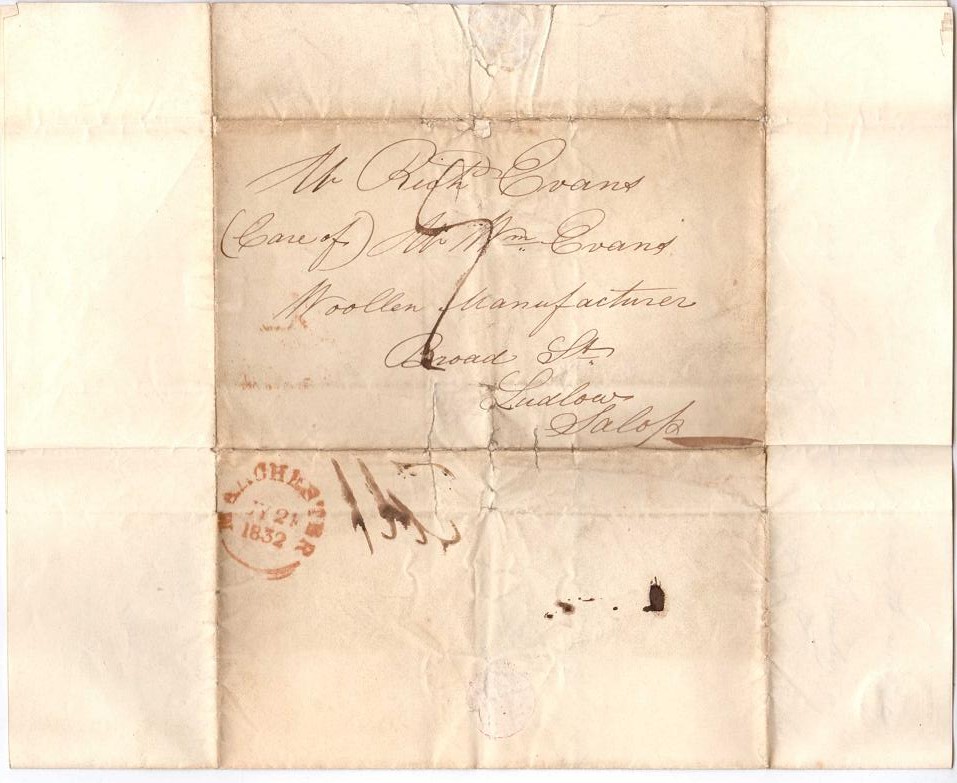 Mr Richd Evans
(Care of) Mr Wm Evans
Woollen Manufacturer
Broad St.
Ludlow
Salop
7
MANCHESTER
1832